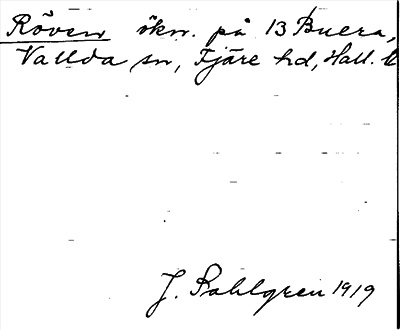 Röven ökn. på 13 Buera,
Vallda sn, Fjäre hd, Hall. l
J. Sahlgren 1919